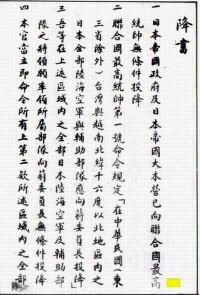 降書
一日本帝國政府及日本帝國大本營已向聯合國最高
統帥無條件投降
二聯合國最高統帥第一號命令規定「在中華民國(東
三省除外)台灣與越南北緯十六度以北地區內之
日本全部陸海空軍與輔助部隊應向蔣委員長投降
三吾等在上述區域內之全部日本陸海空軍及輔助部
隊之將領願率領所屬部隊向蔣委員長無條件投降
四本官當立即命令所有上第二款所述區域內之全部